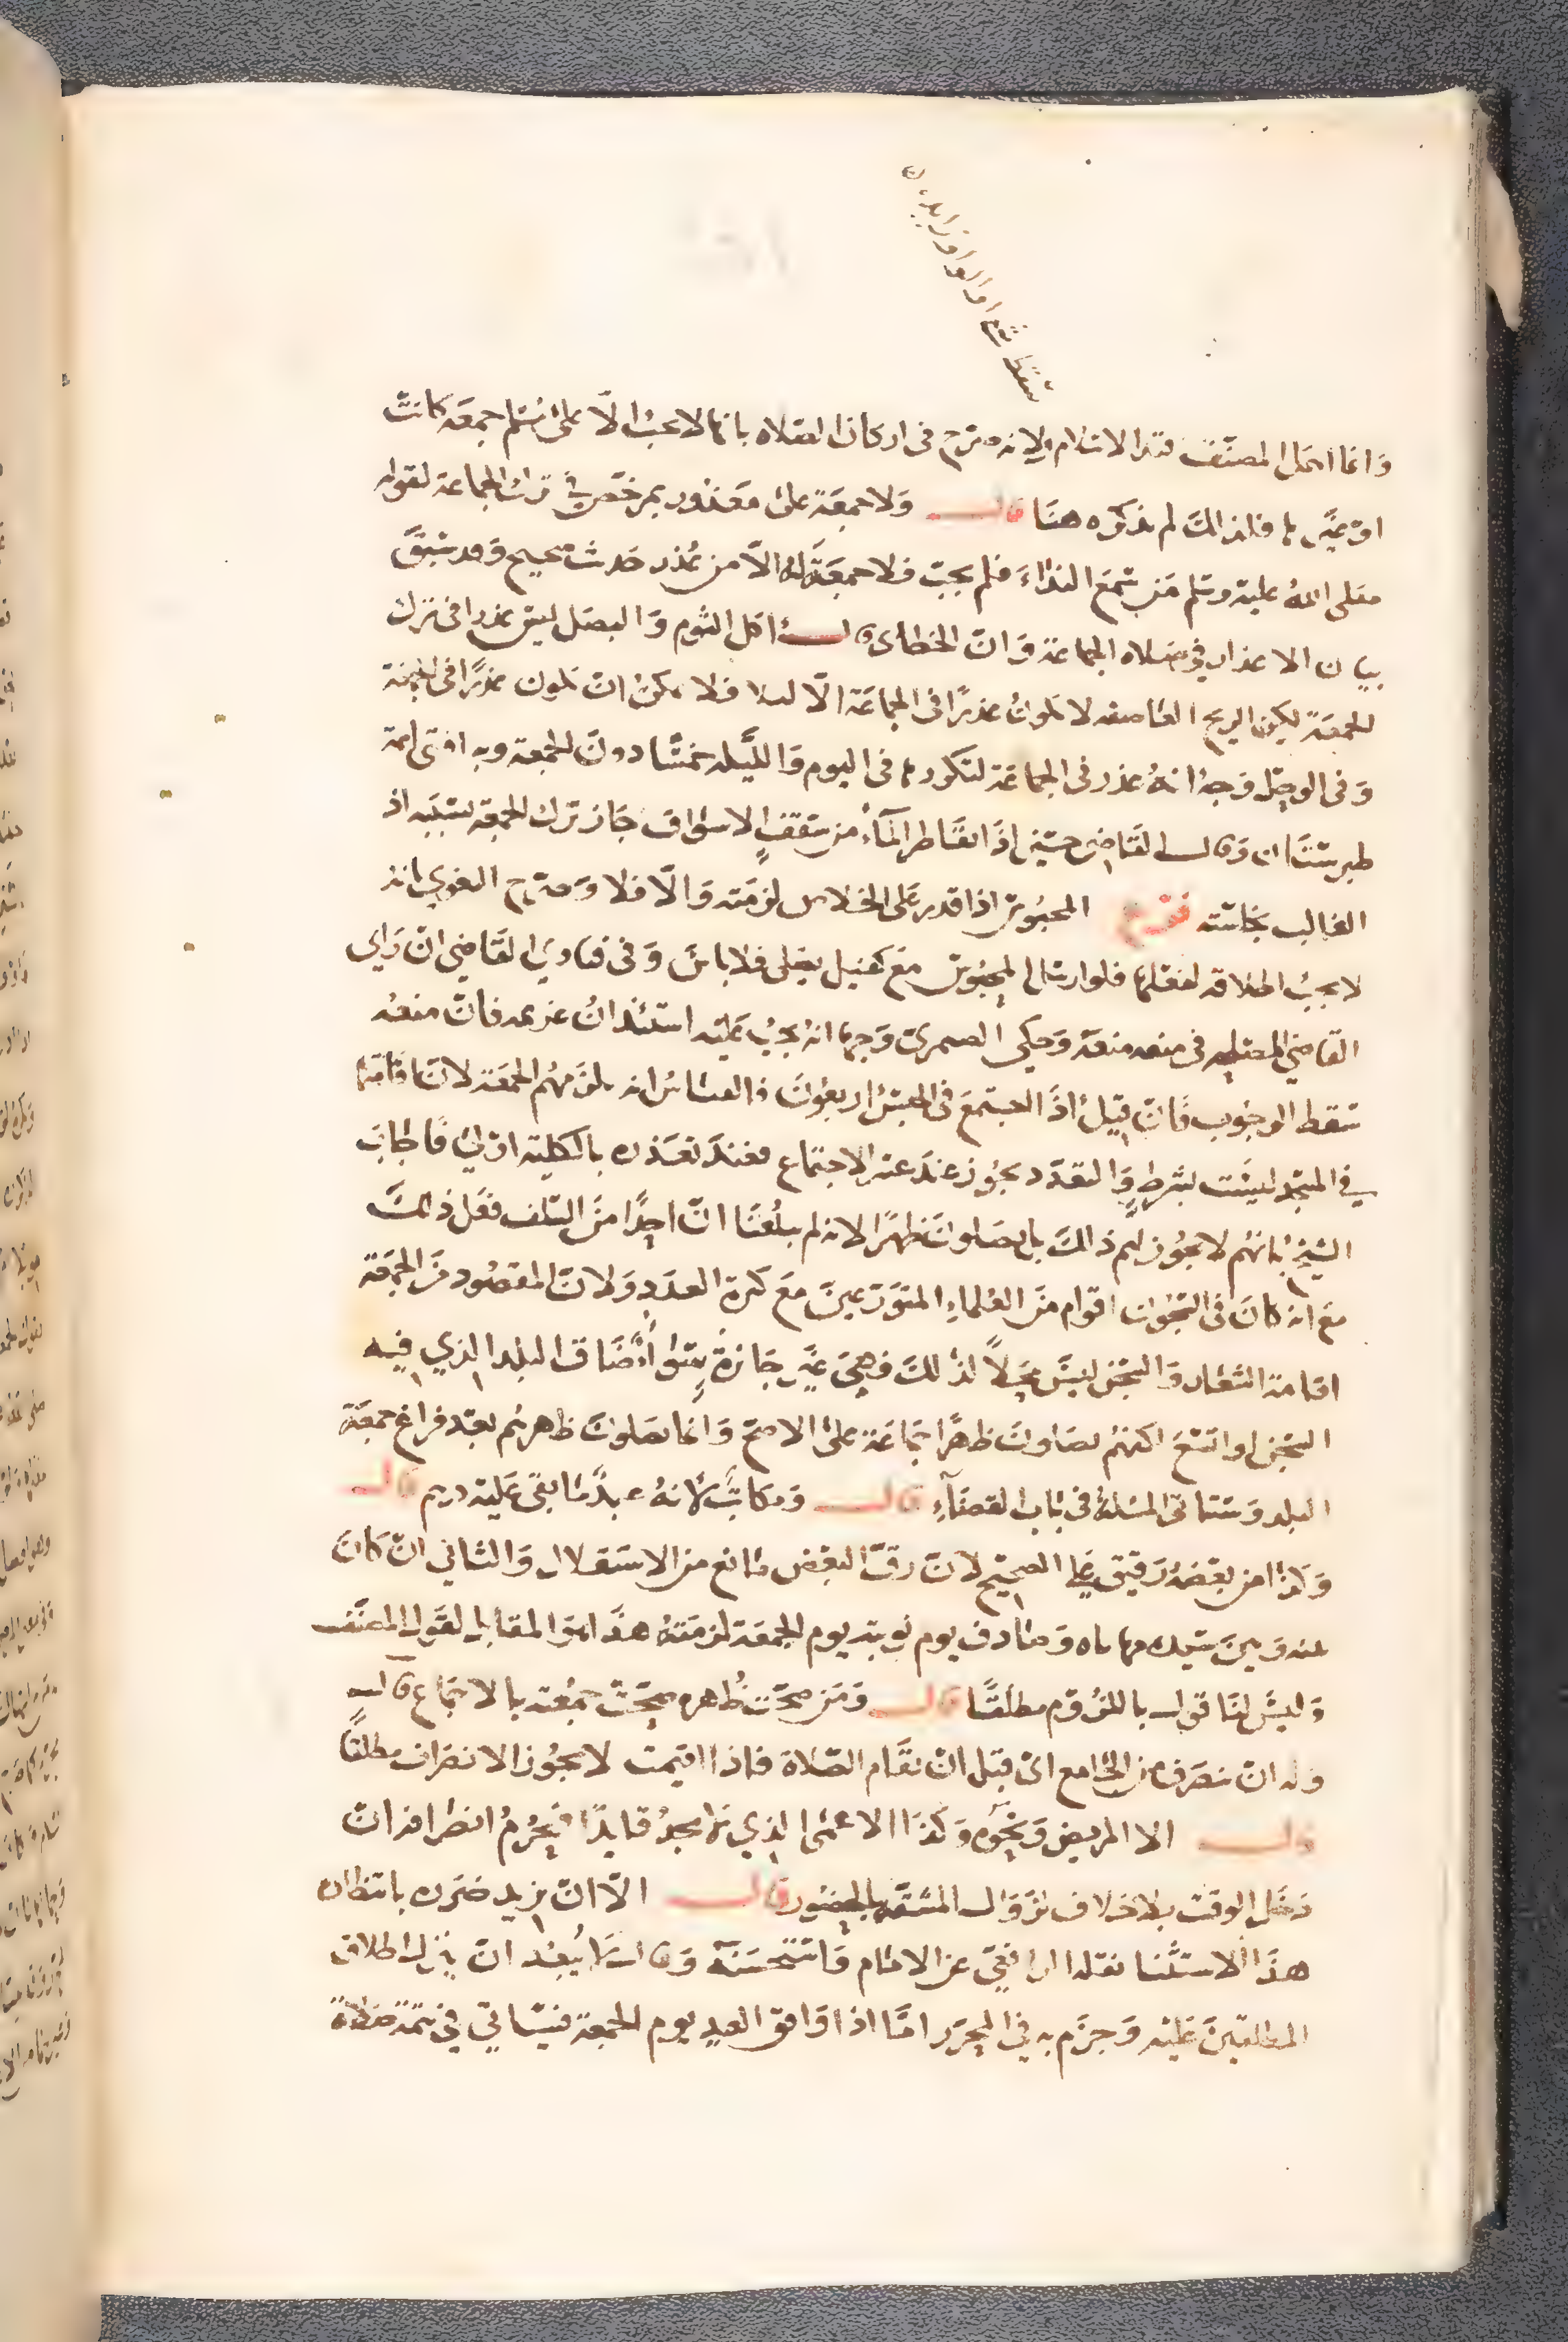 وانما اهمل المصنف قيد الاسلام لانه صرح فى اركان الصلاه بانها لا تجب الا على مسلم جمعه كانت
او غيرها فلذلك لم يذكره هنا قال ولا جمعة على معذور بمرخص في ترك الجماعة لقوله
صلى الله عليه وسلم من سمع النداء فلم يجب فلا جمعة له الا من عذر حديث صحيح وقد سبق
بيان الاعذار في صلاه الجماعة وان الخطابى قال اكل الثوم والبصل ليس عذرا فى ترك
الجمعة لكن الريح العاصفه لا تكون عذرا فى الجماعة الا ليلا فلا يمكن ان تكون عذرا فى الجمعة
وفى الوحل وجه انه عذر فى الجماعة لتكررها فى اليوم والليله خمسا دون الجمعة وبه افتى ايمة
طبرستان وقال القاضي حسين اذا تقاطر الماء من سقف الاسواق جاز ترك الجمعة بسببه اذ
الغالب نجاسته فرع المحبوس اذا قدر على الخلاص لزمته والا فلا وصرح البغوي انه
لا يجب اطلاقه لفعلها فلو ارسل المحبوس مع كفيل يصلى فلا باس وفى فتاوى القاضي ان راى
القاضي المصلحه فى منعه منعه وحكى الصيمرى وجها انه يجب عليه استئذان غريمه فان منعه
سقط الوجوب فان قيل اذا اجتمع فى الحبس اربعون فالقياس انه يلزمهم الجمعة لان اقامتها
في المسجد ليست بشرط والتعدد يجوز عند عسر الاجتماع فعند تعذره بالكلية اولى فاجاب
الشيخ بانهم لا يجوز لهم ذلك بل يصلون ظهرا لانه لم يبلغنا ان احدا من السلف فعل ذلك
مع انه كان فى السجون اقوام من العلماء المتورعين مع كثرة العدد ولان المقصود من الجمعة
اقامة الشعار والسجن ليس محلا لذلك فهي غير جائزة سواء ضاق البلد الذي فيه
السجن او اتسع لكنهم يصلون ظهرا جماعة على الاصح وانما يصلون ظهرهم بعد فراغ جمعة
البلد وستاتى المسئلة فى باب القضاء قال ومكاتب لانه عبد ما بقى عليه درهم قال
وكذا من بعضه رقيق على الصحيح لان رق البعض مانع من الاستقلال والثاني ان كان
بينه وبين سيده مهاياه وصادف يوم نوبته يوم الجمعة لزمته هذا هو المقابل لقول المصنف
وليس لنا قول باللزوم مطلقا قال ومن صحت ظهره صحت جمعته بالاجماع قال
وله ان ينصرف من الجامع اى قبل ان تقام الصلاة فاذا اقيمت لا يجوز الانصراف مطلقا
قال الا المريض ونحوه وكذا الاعمى الذي لا يجد قايدا فيحرم انصرافه ان
دخل الوقت بلا خلاف لزوال المشقه بالحضور قال الا ان يزيد ضرره بانتظاره
هذا الاستثنا نقله الرافعي عن الامام واستحسنه وقال لا يبعد ان ينزل اطلاق
المطلقين عليه وجزم به في المحرر اما اذا وافق العيد يوم الجمعة فسياتي في تتمة صلاة